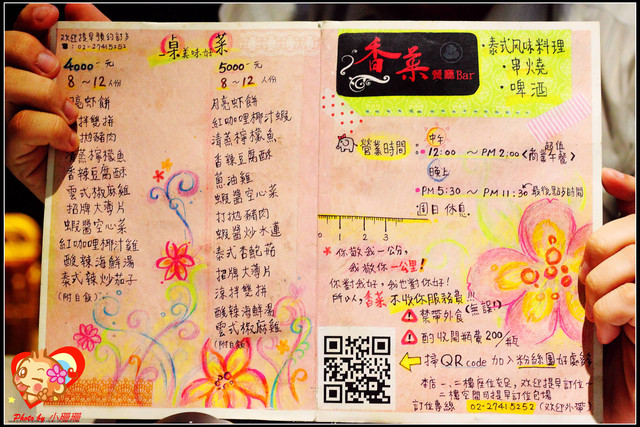 欢迎提早預約訂桌
☎：02-27415252
一桌美味好菜
4000-元
8～12人份
月亮蝦餅
涼拌雙拼
打拋豬肉
清蒸檸檬魚
香辣豆腐酥
雲式椒麻雞
招牌大薄片
蝦醬空心菜
紅咖哩椰汁雞
酸辣海鮮湯
泰式辣炒茄子
(附白飯)
5000-元
8～12人份
月亮蝦餅
紅咖哩椰汁蝦
清蒸檸檬魚
香辣豆腐酥
蔥油雞
蝦醬空心菜
打拋豬肉
蝦醬炒水蓮
泰式杏鮑菇
招牌大薄片
涼拌雙拼
酸辣海鮮湯
雲式椒麻雞
(附白飯)
香菜
餐廳Bar
·泰式風味料理
·串燒
·啤酒
營業時間：
中午
12:00 ～PM 2:00
晚上
PM 5:30 ～PM 11:30
週日休息.
1 2 3
你敬我一公分,
我敬你一公里!
你對我好，我也對你好!
所以,香菜不收你服務費!!!
禁帶外食(無誤!)
酌收開瓶費200/瓶
掃QR code 加入粉絲團
本店一、二樓座位充足，欢迎提早訂位
二樓空間可提早訂位包場
訂位專線 02-27415252 (欢迎外帶)
Photo by 小珊珊